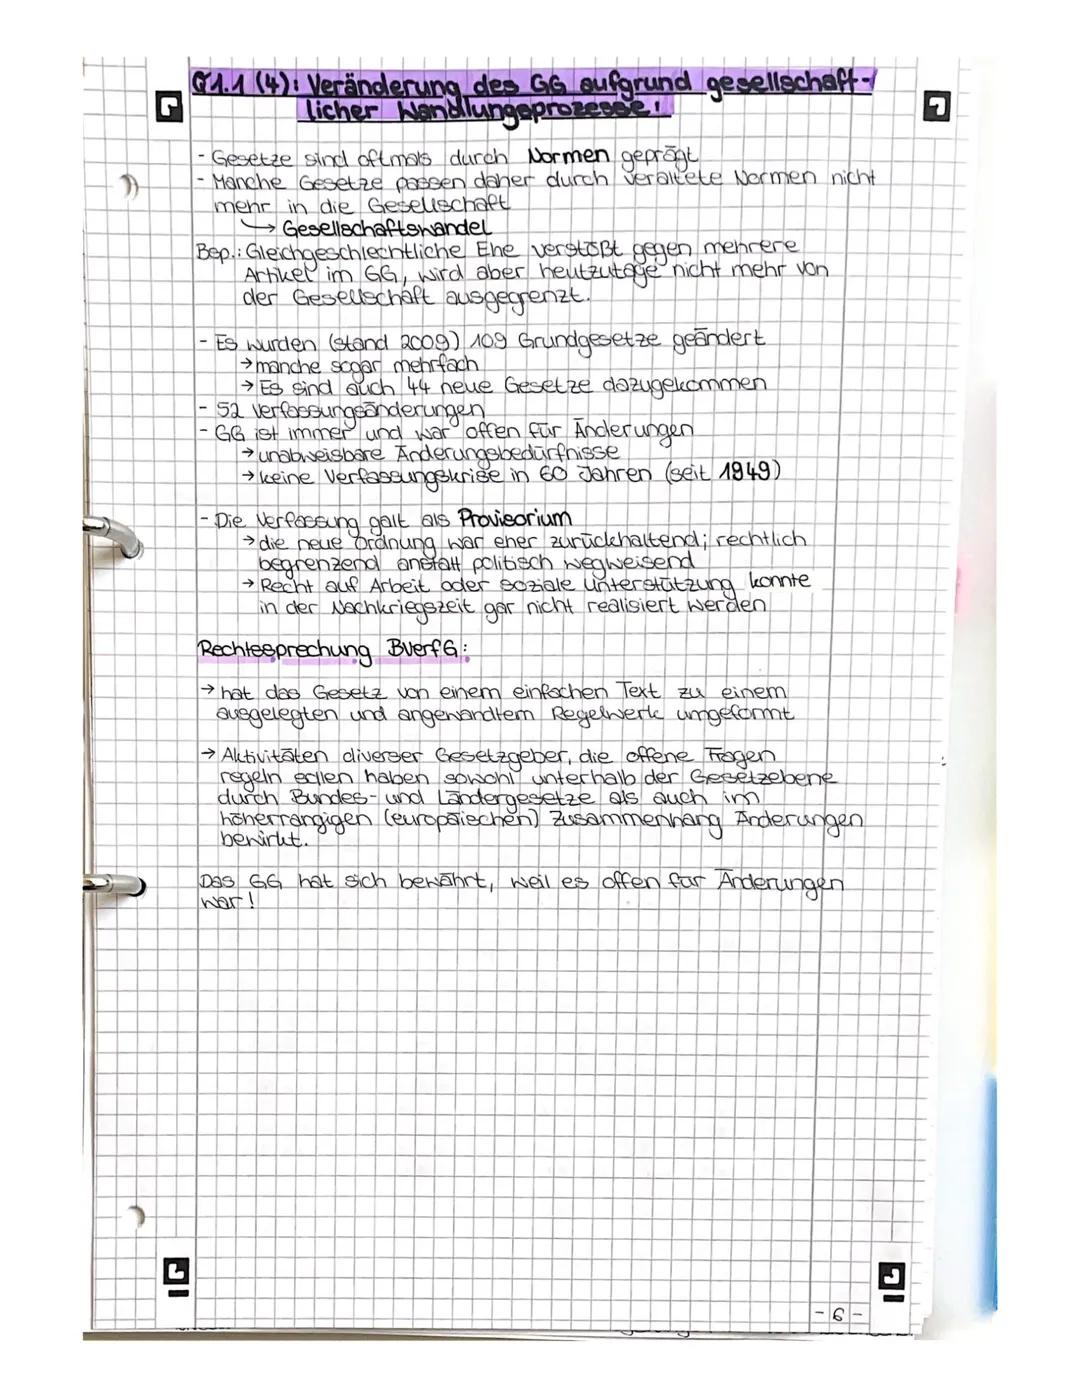 Q1.1 (4): Veränderung des GG aufgrund gesellschaft-
licher Wandlungsprozesse!
- Gesetze sind oftmals durch Normen geprägt
- Manche Gesetze passen daher durch veraltete Normen nicht
mehr in die Gesellschaft
↳ Gesellschaftswandel
Bsp.: Gleichgeschlechtliche Ehe verstößt gegen mehrere
Artikel im GG, wird aber heutzutage nicht mehr von
der Gesellschaft ausgegrenzt.
- Es wurden (stand 2009) 109 Grundgesetze geändert
→ manche sogar mehrfach
→ Es sind auch 44 neue Gesetze dazugekommen
- 52 Verfassungsänderungen
- GG ist immer und war offen für Änderungen
→ unabweisbare Änderungsbedürfnisse
→ keine Verfassungskrise in 60 Jahren (seit 1949)
- Die Verfassung galt als Provisorium
→ die neue Ordnung war eher zurückhaltend; rechtlich
begrenzend anstatt politisch wegweisend
→ Recht auf Arbeit oder soziale Unterstützung konnte
in der Nachkriegszeit gar nicht realisiert werden
Rechtssprechung BVerfG:
→ hat das Gesetz von einem einfachen Text zu einem
ausgelegten und angewandtem Regelwerk umgeformt
→ Aktivitäten diverser Gesetzgeber, die offene Fragen
regeln sollen haben sowohl unterhalb der Gesetzebene
durch Bundes- und Ländergesetze als auch im
höherrangigen (europäischen) Zusammenhang Änderungen
bewirkt.
Das GG hat sich bewährt, weil es offen für Änderungen
war!
- 6 -